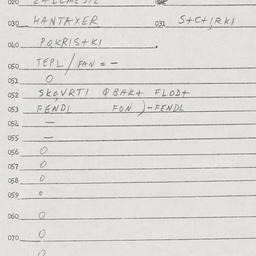 030 HANTAXER 031 S+C+,RKI
040 POKRIS+KI
050 TEPL/FAN = -
051 O
052 SKOVRTI QBAK+ FLOD+
053 FENDL FON )-FENDL
054 -
055 -
056 O
057 O
058 O
059 O
060 O
070 O